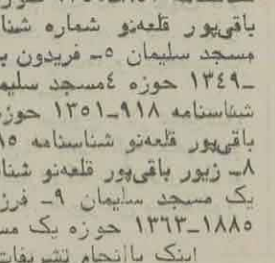 باقی‌پور قلعه‌نو شماره شنا
مسجد سلیمان ۵_ فریدون
_۱۳۴۹ حوزه ٤مسجد سلیم
شناسنامه ۹۱۸_۱۳۵۱ حوز
باقی‌پور قلعه‌نو شناسنامه ۸۵
۸_ زیور باقی‌پور قلعه‌نو شنا
یک مسجد سلیمان ۹_ فرز
۱۸۸۵_۱۳۶۳ حوزه یک مس
اینک باانجام تشریفات